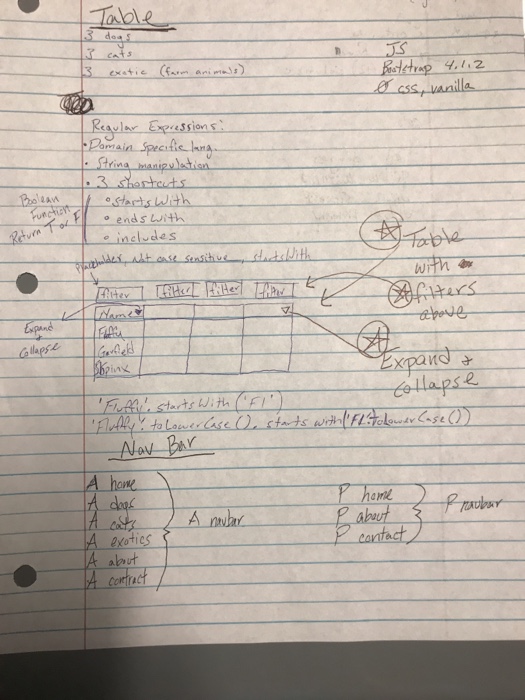 Table
3 dogs
3 cats
3 exotic (farm animals)
JS
Bootstrap 4.1.2
Ø css, vanilla
Regular Expressions:
• Domain specific lang.
• String manipulation
• 3 shortcuts
Boolean
Function
Return T or F
• starts with
• ends with
• includes
Placeholder, not case sensitive, startsWith
Table
with
filters
above
filter filter filter filter
Name
Fluffy
Garfield
Sphinx
Expand
Collapse
Expand +
collapse
'Fluffy'. starts With ('Fl')
'Fluffy'. toLowerCase(). starts with('FL'.toLowerCase())
Nav Bar
A home
A dogs
A cats
A exotics
A about
A contract
A navbar
P home
P about
P contact
P navbar